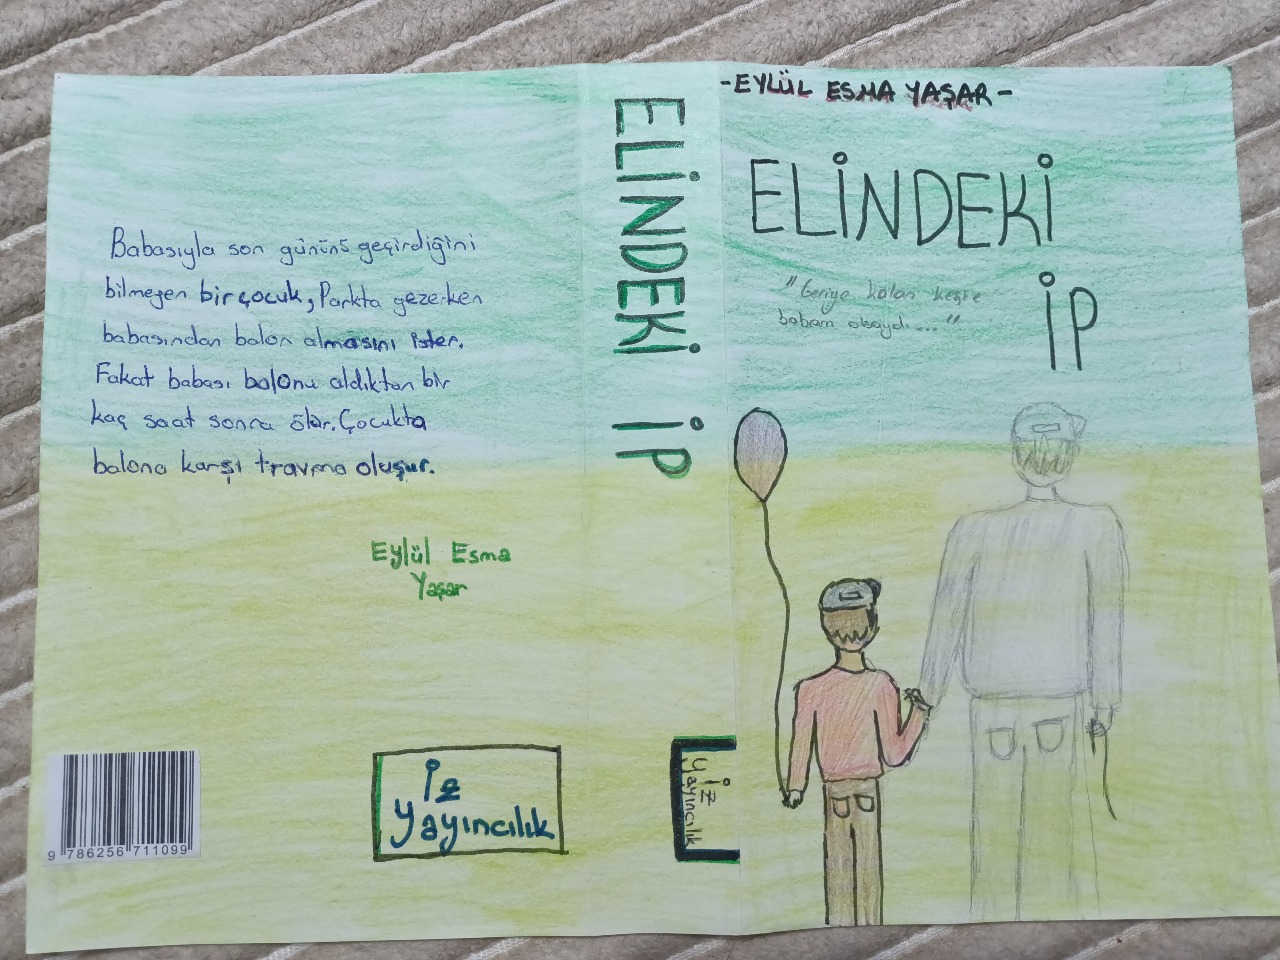 Babasıyla son gününü geçirdiğini
bilmeyen bir çocuk, Parkta gezerken
babasından balon almasını ister.
Fakat babası balonu aldıktan bir
kaç saat sonra ölür. Çocukta
balona karşı travma oluşur.
Eylül Esma
Yaşar
9 786256 711099
İz
Yayıncılık
ELİNDEKİ İP
İz
Yayıncılık
-EYLÜL ESMA YAŞAR-
ELİNDEKİ
İP
"Geriye kalan keşke
babam olsaydı..."